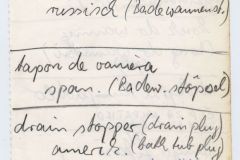 russisch (Badewannenst.
tapon de vaniera
span. (Badew. stöpsel)
drain stopper (drain plug)
amerik. (Bath tub plug